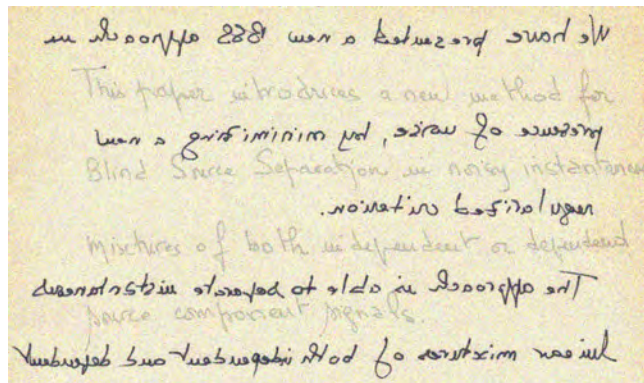 We have presented a new BSS approach in
This paper introduces a new method for
presence of noise, by minimizing a new
Blind Source Separation in noisy instantaneous
regularized criterion.
mixtures of both independent or dependent
The approach is able to separate instantaneous
source component signals.
linear mixtures of both independent and dependent